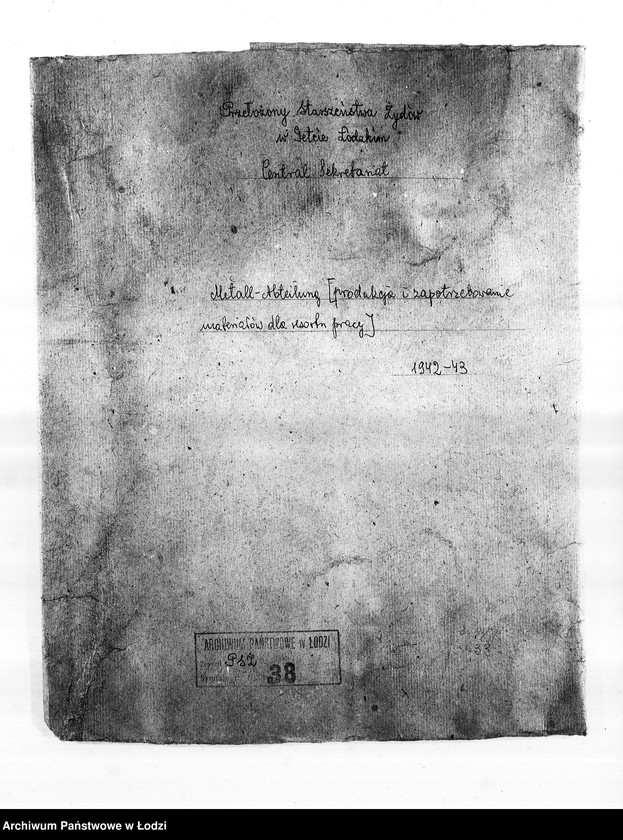 Przełożony Starszeństwa Żydów
w Getcie Łódzkim
Central Sekretariat
Metall-Abteilung [produkcja i zapotrzebowanie
materiałów dla resortu pracy]
1942-43
ARCHIWUM PAŃSTWOWE w ŁODZI
Zespół PSŻ
Sygnatura 38
33
Archiwum Państwowe w Łodzi